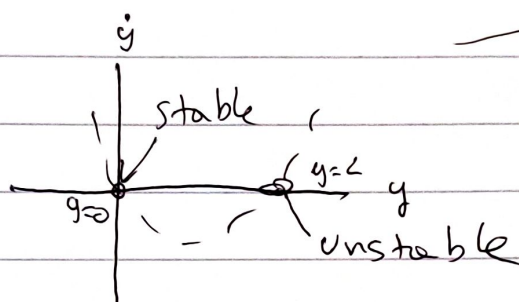 ẏ
stable
y=2
y=0
y
unstable